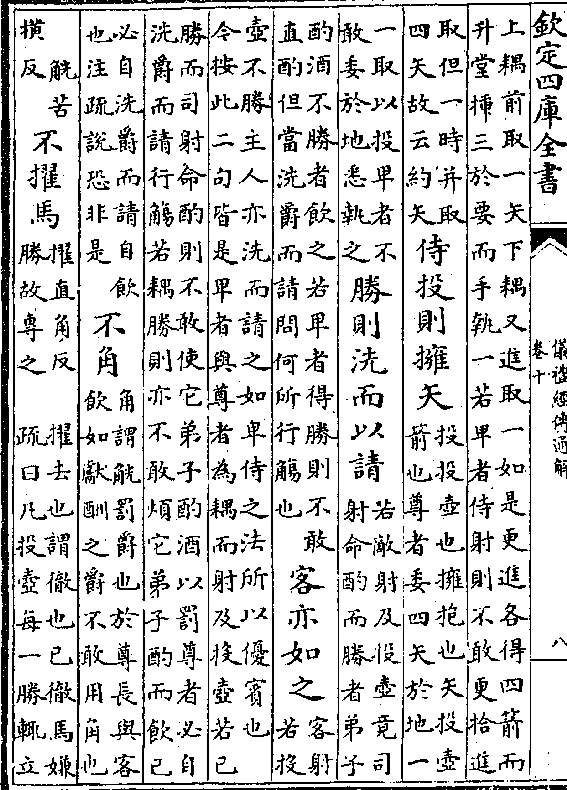 欽定四庫全書
儀禮經傳通解
卷十
八
上耦前取一矢下耦又進取一如是更進各得四箭而
升堂搢三於要而手執一若卑者侍射則不敢更拾進
取但一時并取
四矢故云約矢
侍投則擁矢
投投壺也擁抱也矢投壺
箭也尊者委四矢於地一
一取以投卑者不
敢委於地悉執之
勝則洗而以請
若敵射及投壺竟司
射命酌而勝者弟子
酌酒不勝者飲之若卑者得勝則不敢
直酌但當洗爵而請問何所行觴也
客亦如之
客射
若投
壺不勝主人亦洗而請之如卑侍之法所以優賓也
今按此二句皆是卑者與尊者為耦而射及投壺若已
勝而司射命酌則不敢使它弟子酌酒以罰尊者必自
洗爵而請行觴若耦勝則亦不敢煩它弟子酌而飲已
必自洗爵而請自飲
也注疏說恐非是
不角
角謂觥罰爵也於尊長與客
飲如獻酬之爵不敢用角也
觥苦
橫反
不擢馬
擢直角反
擢去也謂徹也已徹馬嫌
勝故專之
疏曰凡投壺每一勝輒立